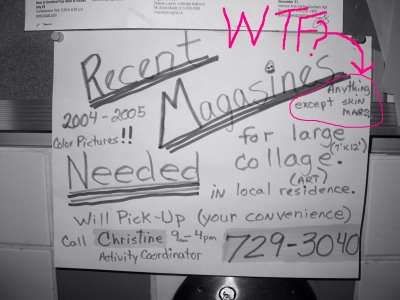 WTF?
Recent
Magasines
2004-2005
Color Pictures!!
Anything
except SKIN
MAGS
Needed
for large
(7'x12')
collage.
(ART)
in local residence.
Will Pick-Up (your convenience)
Call Christine 9am-4pm 729-3040
Activity Coordinator